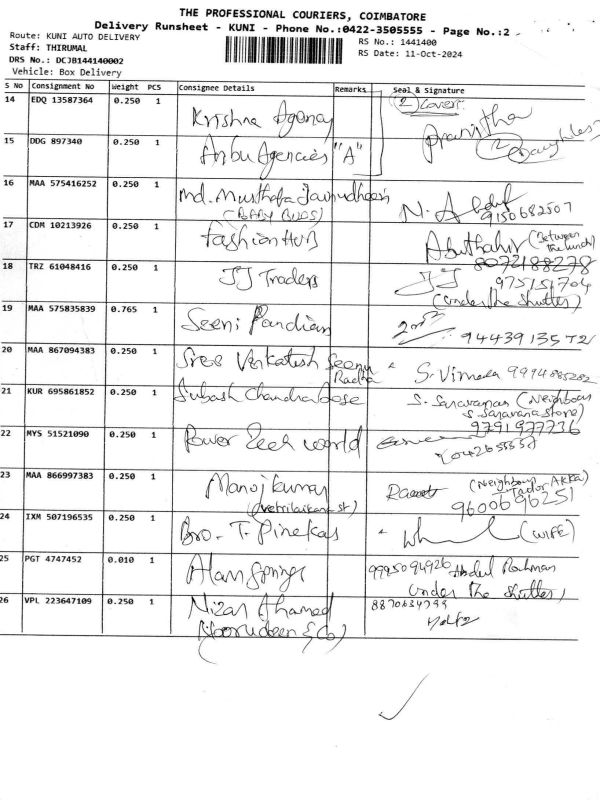 THE PROFESSIONAL COURIERS, COIMBATORE
Delivery Runsheet - KUNI - Phone No.:0422-3505555 - Page No.:2
Route: KUNI AUTO DELIVERY
RS No.: 1441400
Staff: THIRUMAL
RS Date: 11-Oct-2024
DRS No.: DCJB144140002
Vehicle: Box Delivery
S No Consignment No Weight PCS Consignee Details Remarks Seal & Signature
14 EDQ 13587364 0.250 1 Krishna Agency
15 DDG 897340 0.250 1 Anbu Agencies "A"
16 MAA 575416252 0.250 1 Md. Musthafa 9150682507
(BABY BUDS)
17 CDM 10213926 0.250 1 Fashion HUB Abuthahir (Between
8072188278
18 TRZ 61048416 0.250 1 JJ Traders JJ
(Under the shutter)
19 MAA 575835839 0.765 1 Seeni Pandian 9443913572
20 MAA 867094383 0.250 1 Sree Venkatesh Seenu S. Vimala 9994885282
Radha
21 KUR 695861852 0.250 1 Subash Chandra Bose S. Saravanan (Neighbour
S. Saravana store)
9791977736
22 MYS 51521090 0.250 1 Power Tech World
23 MAA 866997383 0.250 1 Manoj kumar (Neighbour
9600690251
24 IXM 507196535 0.250 1 Bro. T. Pinekas (WIFE)
25 PGT 4747452 0.010 1 9995094926 Abdul Rahman
Under the shutter)
26 VPL 223647109 0.250 1 Nizar Ahamed 8870634799
(Noorudeen & Co)